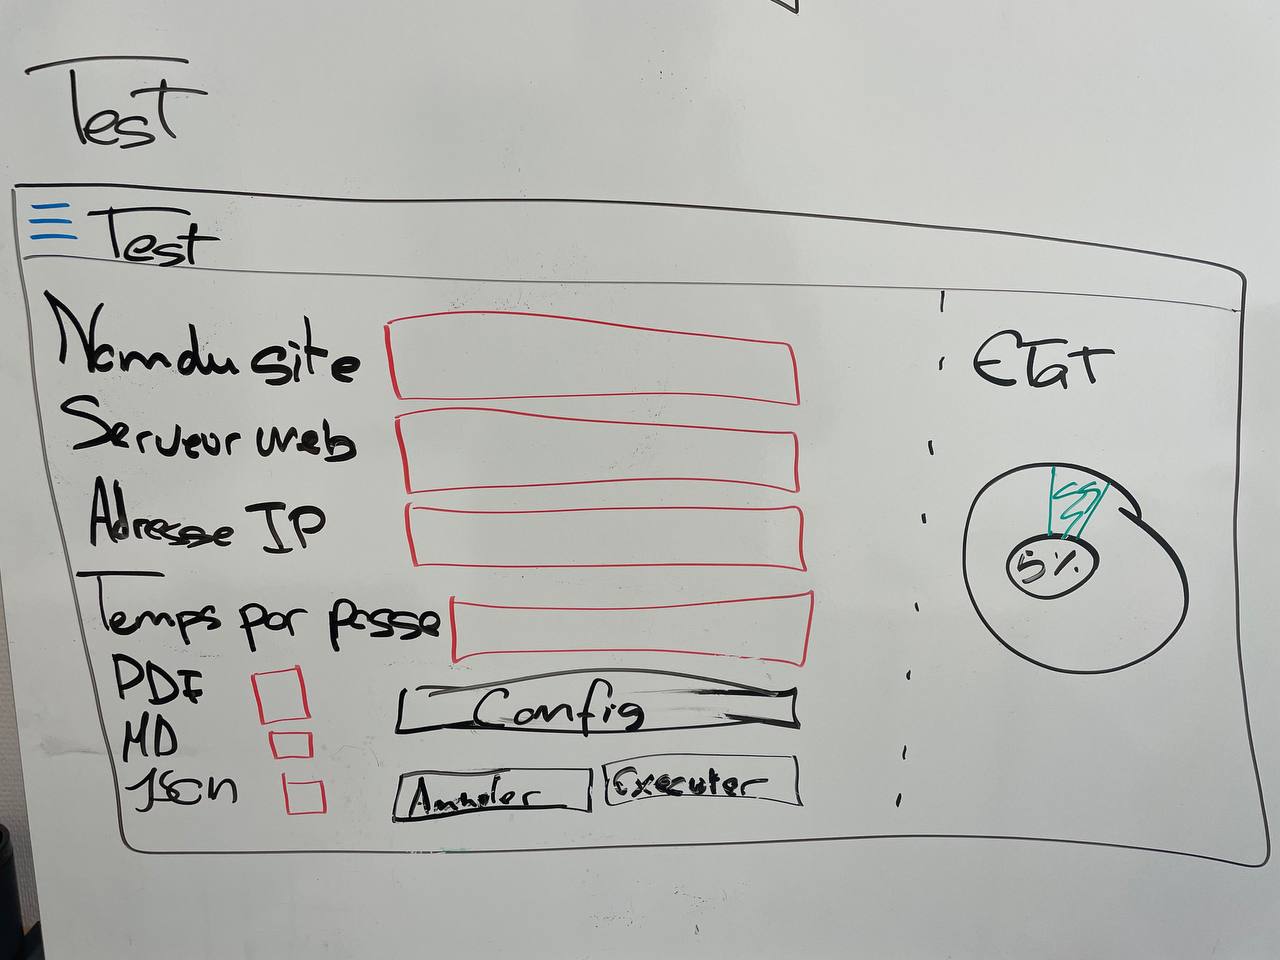 Test
Test
Nom du site
Serveur web
Adresse IP
Temps par passe
PDF
MD
JSON
Config
Annuler
Executer
ETAT
5%